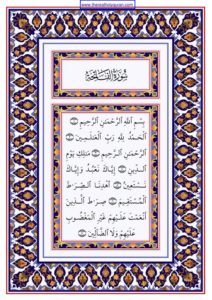 www.thenobleyquran.com
سورة الفاتحة
بِسْمِ ٱللَّهِ ٱلرَّحْمَـٰنِ ٱلرَّحِيمِ ۝
ٱلْحَمْدُ لِلَّهِ رَبِّ ٱلْعَـٰلَمِينَ ۝
ٱلرَّحْمَـٰنِ ٱلرَّحِيمِ ۝ مَـٰلِكِ يَوْمِ
ٱلدِّينِ ۝ إِيَّاكَ نَعْبُدُ وَإِيَّاكَ
نَسْتَعِينُ ۝ ٱهْدِنَا ٱلصِّرَٰطَ
ٱلْمُسْتَقِيمَ ۝ صِرَٰطَ ٱلَّذِينَ
أَنْعَمْتَ عَلَيْهِمْ غَيْرِ ٱلْمَغْضُوبِ
عَلَيْهِمْ وَلَا ٱلضَّآلِّينَ ۝